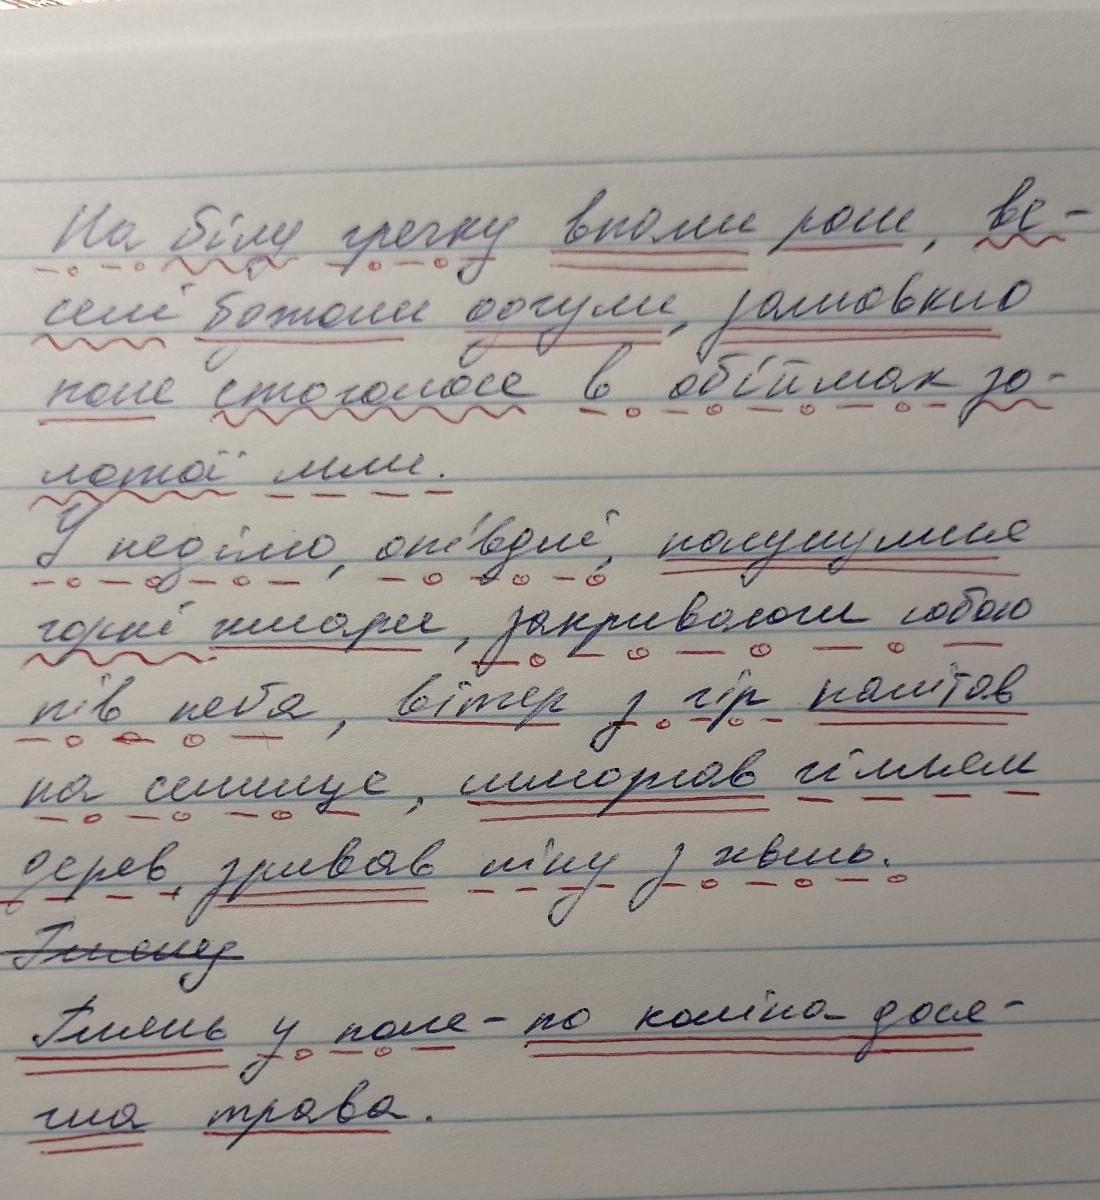 На білу гречку впали роси, ве-
селі бджоли одгули, замовкло
поле стоголосе в обіймах зо-
лотої мли.
У неділю, опівдні, насунулися
горні хмари, закривавши собою
пів неба, вітер з гір налітав
на селище, шморгав гіллям
дерев, зривав піну з хвиль.
Глянь у поле - по коліна дося-
гла трава.